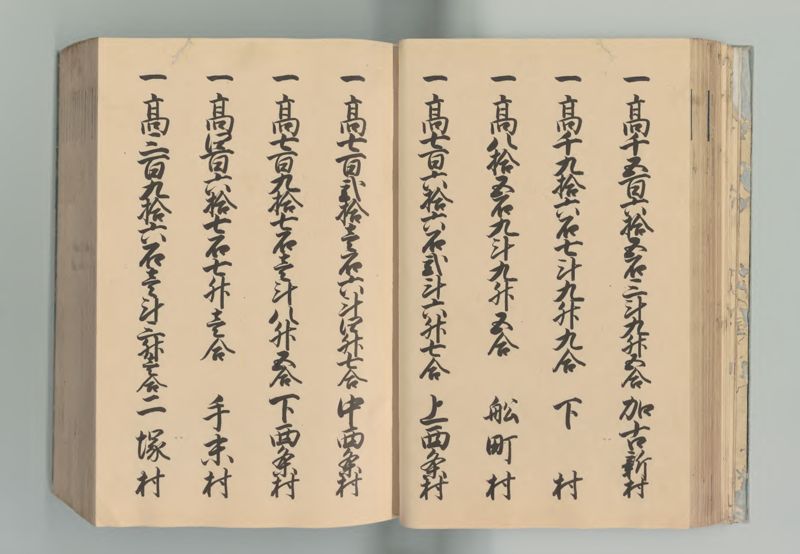 一 高千五百六拾五石二斗九升五合 加古新村
一 高千九拾六石七斗九升九合 下村
一 高八拾五石九斗九升五合 舩町村
一 高七百六拾六石弐斗六升七合 上西条村
一 高七百弐拾壱石六斗四升七合 中西条村
一 高七百九拾七石壱斗八升五合 下西条村
一 高四百六拾七石七升壱合 手末村
一 高二百九拾六石壱斗二升壱合 二塚村